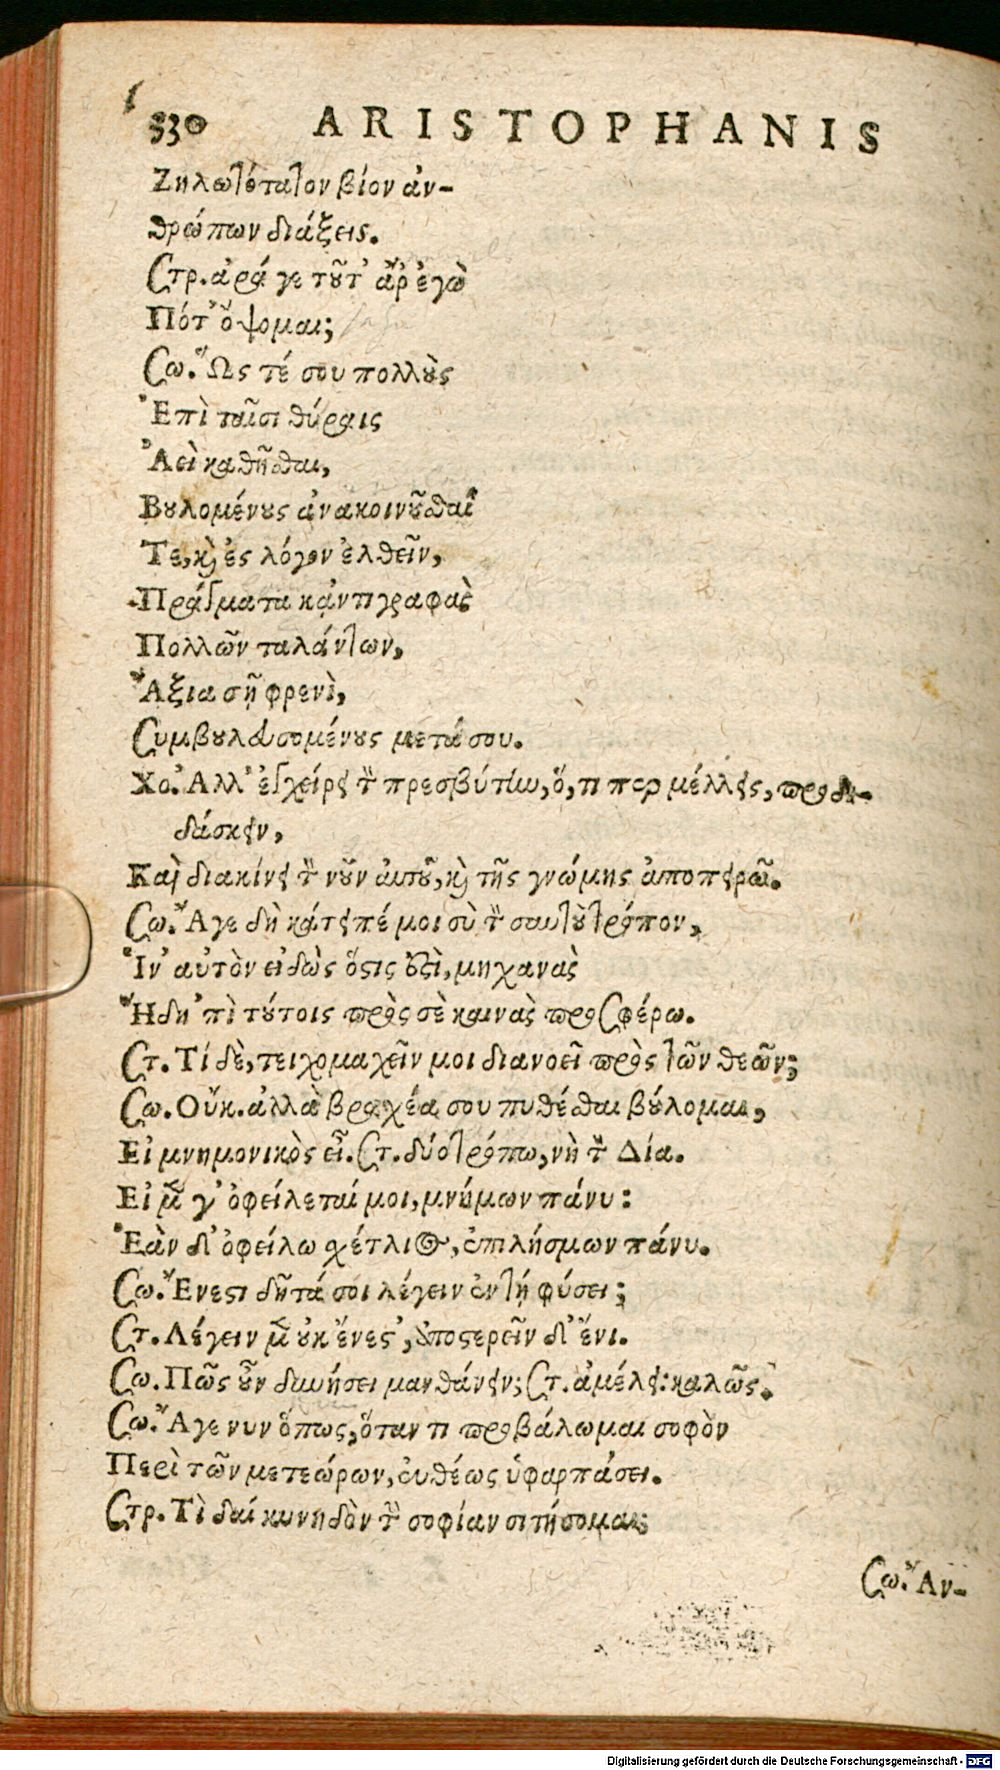 530 ARISTOPHANIS
Ζηλωτότατον βίον ἀν-
θρώπων διάξεις.
Στρ. ἀρά γε τοῦτ' ἄρ' ἐγὼ
Πότ' ὄψομαι;
Σω. Ὥς τέ σου πολλοὺς
Ἐπὶ ταῖσι θύραις
Ἀεὶ καθῆσθαι,
Βουλομένους ἀνακοινοῦσθαί
Τε, καὶ ἐς λόγον ἐλθεῖν,
Πράγματα κἀντιγραφὰς
Πολλῶν ταλάντων,
Ἄξια σῇ φρενὶ,
Συμβουλευσομένους μετά σου.
Χο. Ἀλλ' ἐγχείρει τὸν πρεσβύτην, ὅ, τι περ μέλλεις, προδι-
δάσκειν,
Καὶ διακίνει τὸν νοῦν αὐτοῦ, καὶ τῆς γνώμης ἀποπειρῶ.
Σω. Ἄγε δὴ κάτειπέ μοι σὺ τὸν σαυτοῦ τρόπον,
Ἵν' αὐτὸν εἰδὼς ὅστις ἐστὶ, μηχανὰς
Ἤδη 'πὶ τούτοις πρὸς σὲ καινὰς προσφέρω.
Στ. Τί δὲ, τειχομαχεῖν μοι διανοεῖ πρὸς τῶν θεῶν;
Σω. Οὔκ. ἀλλὰ βραχέα σου πυθέσθαι βούλομαι,
Εἰ μνημονικὸς εἶ. Στ. δύο τρόπω, νὴ τὸν Δία.
Εἰ μὲν γ' ὀφείλεταί μοι, μνήμων πάνυ:
Ἐὰν δ' ὀφείλω σχέτλιος, ἐπιλήσμων πάνυ.
Σω. Ἔνεστι δῆτά σοι λέγειν ἐν τῇ φύσει;
Στ. Λέγειν μὲν οὐκ ἔνεστ', ἀποστερεῖν δ' ἔνι.
Σω. Πῶς οὖν δυνήσει μανθάνειν; Στ. ἀμέλει: καλῶς.
Σω. Ἄγε νυν ὅπως, ὅταν τι προβάλωμαι σοφὸν
Περὶ τῶν μετεώρων, εὐθέως ὑφαρπάσει.
Στρ. Τὶ δαί κυνηδὸν τὴν σοφίαν σιτήσομαι;
Σω. Ἀν-
Digitalisierung gefördert durch die Deutsche Forschungsgemeinschaft - DFG